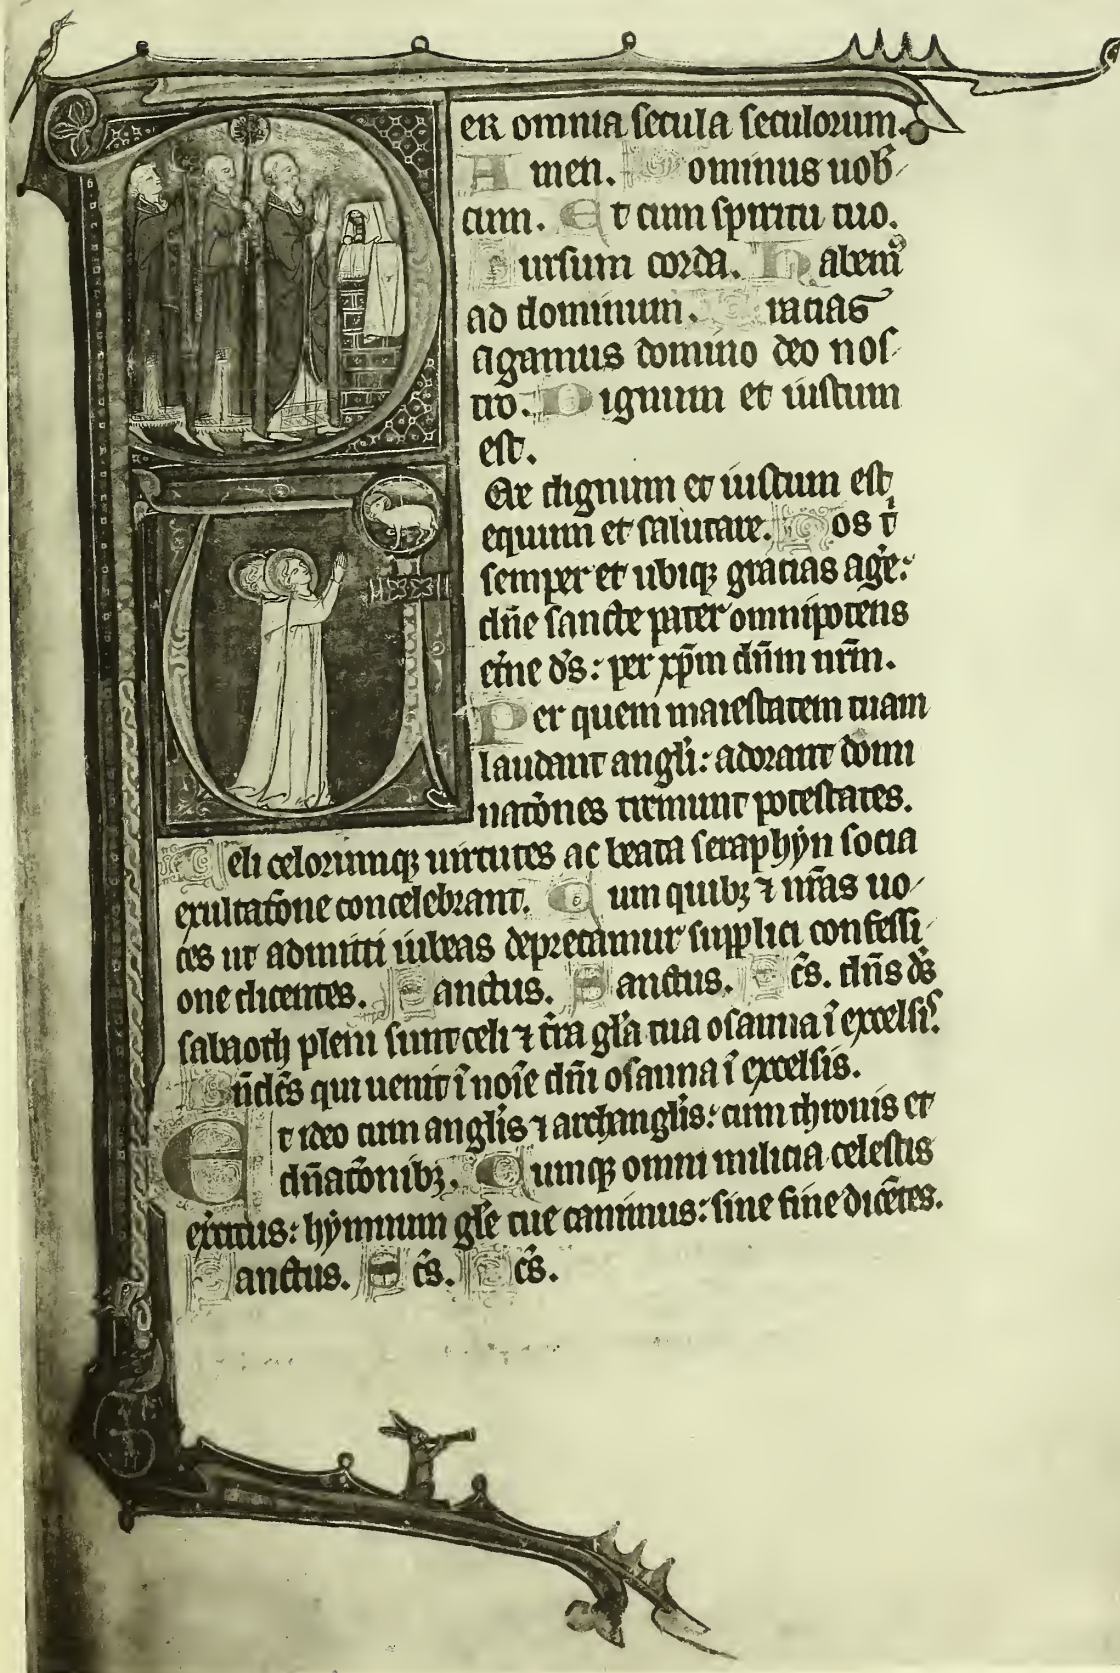 PER omnia secula seculorum.
Amen. Dominus uob
cum. Et cum spiritu tuo.
Sursum corda. Habem᷒
ad dominum. Gracias
agamus domino deo nos
tro. Dignum et iustum
est.
UEre dignum et iustum est
equum et salutare. Nos t̄
semper et ubiqꝫ gracias agē:
dn̄e sancte pater omnipotens
et̄ne ds̄: per xp̄m dn̄m nr̄m.
Per quem maiestatem tuam
laudant angl̄i: adorant domi
natōnes tremunt potestates.
Celi celorumqꝫ uirtutes ac beata seraphẏn socia
exultatōne concelebrant. Cum quibꝫ ⁊ nr̄as uo
ces ut admitti iubeas deprecamur supplici confessi
one dicentes. Sanctus. Sanctus. Sc̄s. dn̄s ds̄
sabaoth pleni sunt celi ⁊ t̄ra gl̄a tua osanna ī excelsis.
Bn̄dc̄s qui uenit ī noīe dn̄i osanna ī excelsis.
Et ideo cum angl̄is ⁊ archangl̄is: cum thronis et
dn̄atōnibꝫ. Cumqꝫ omni milicia celestis
exc̄itus: hẏmnum gl̄e tue canimus: sine fine dicētes.
Sanctus. Sc̄s. Sc̄s.